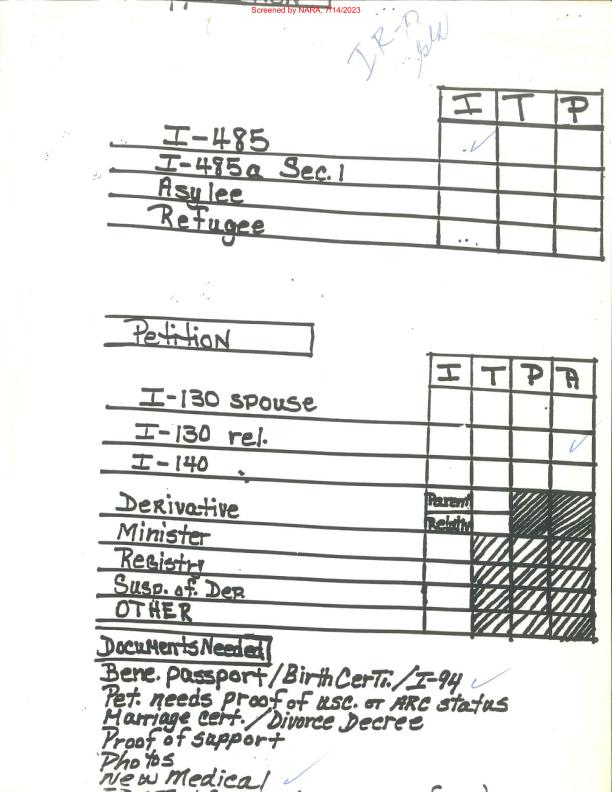 Screened by NARA, 7/14/2023
IR-
I T P
I-485
I-485a Sec. 1
Asylee
Refugee
Petition
I T P A
I-130 spouse
I-130 rel.
I-140
Derivative Parent
Relativ
Minister
Registry
Susp. of Dep.
OTHER
Documents Needed
Bene. passport/Birth Certi./I-94
Pet. needs proof of usc. or ARC status
Marriage cert./Divorce Decree
Proof of support
Photos
New Medical